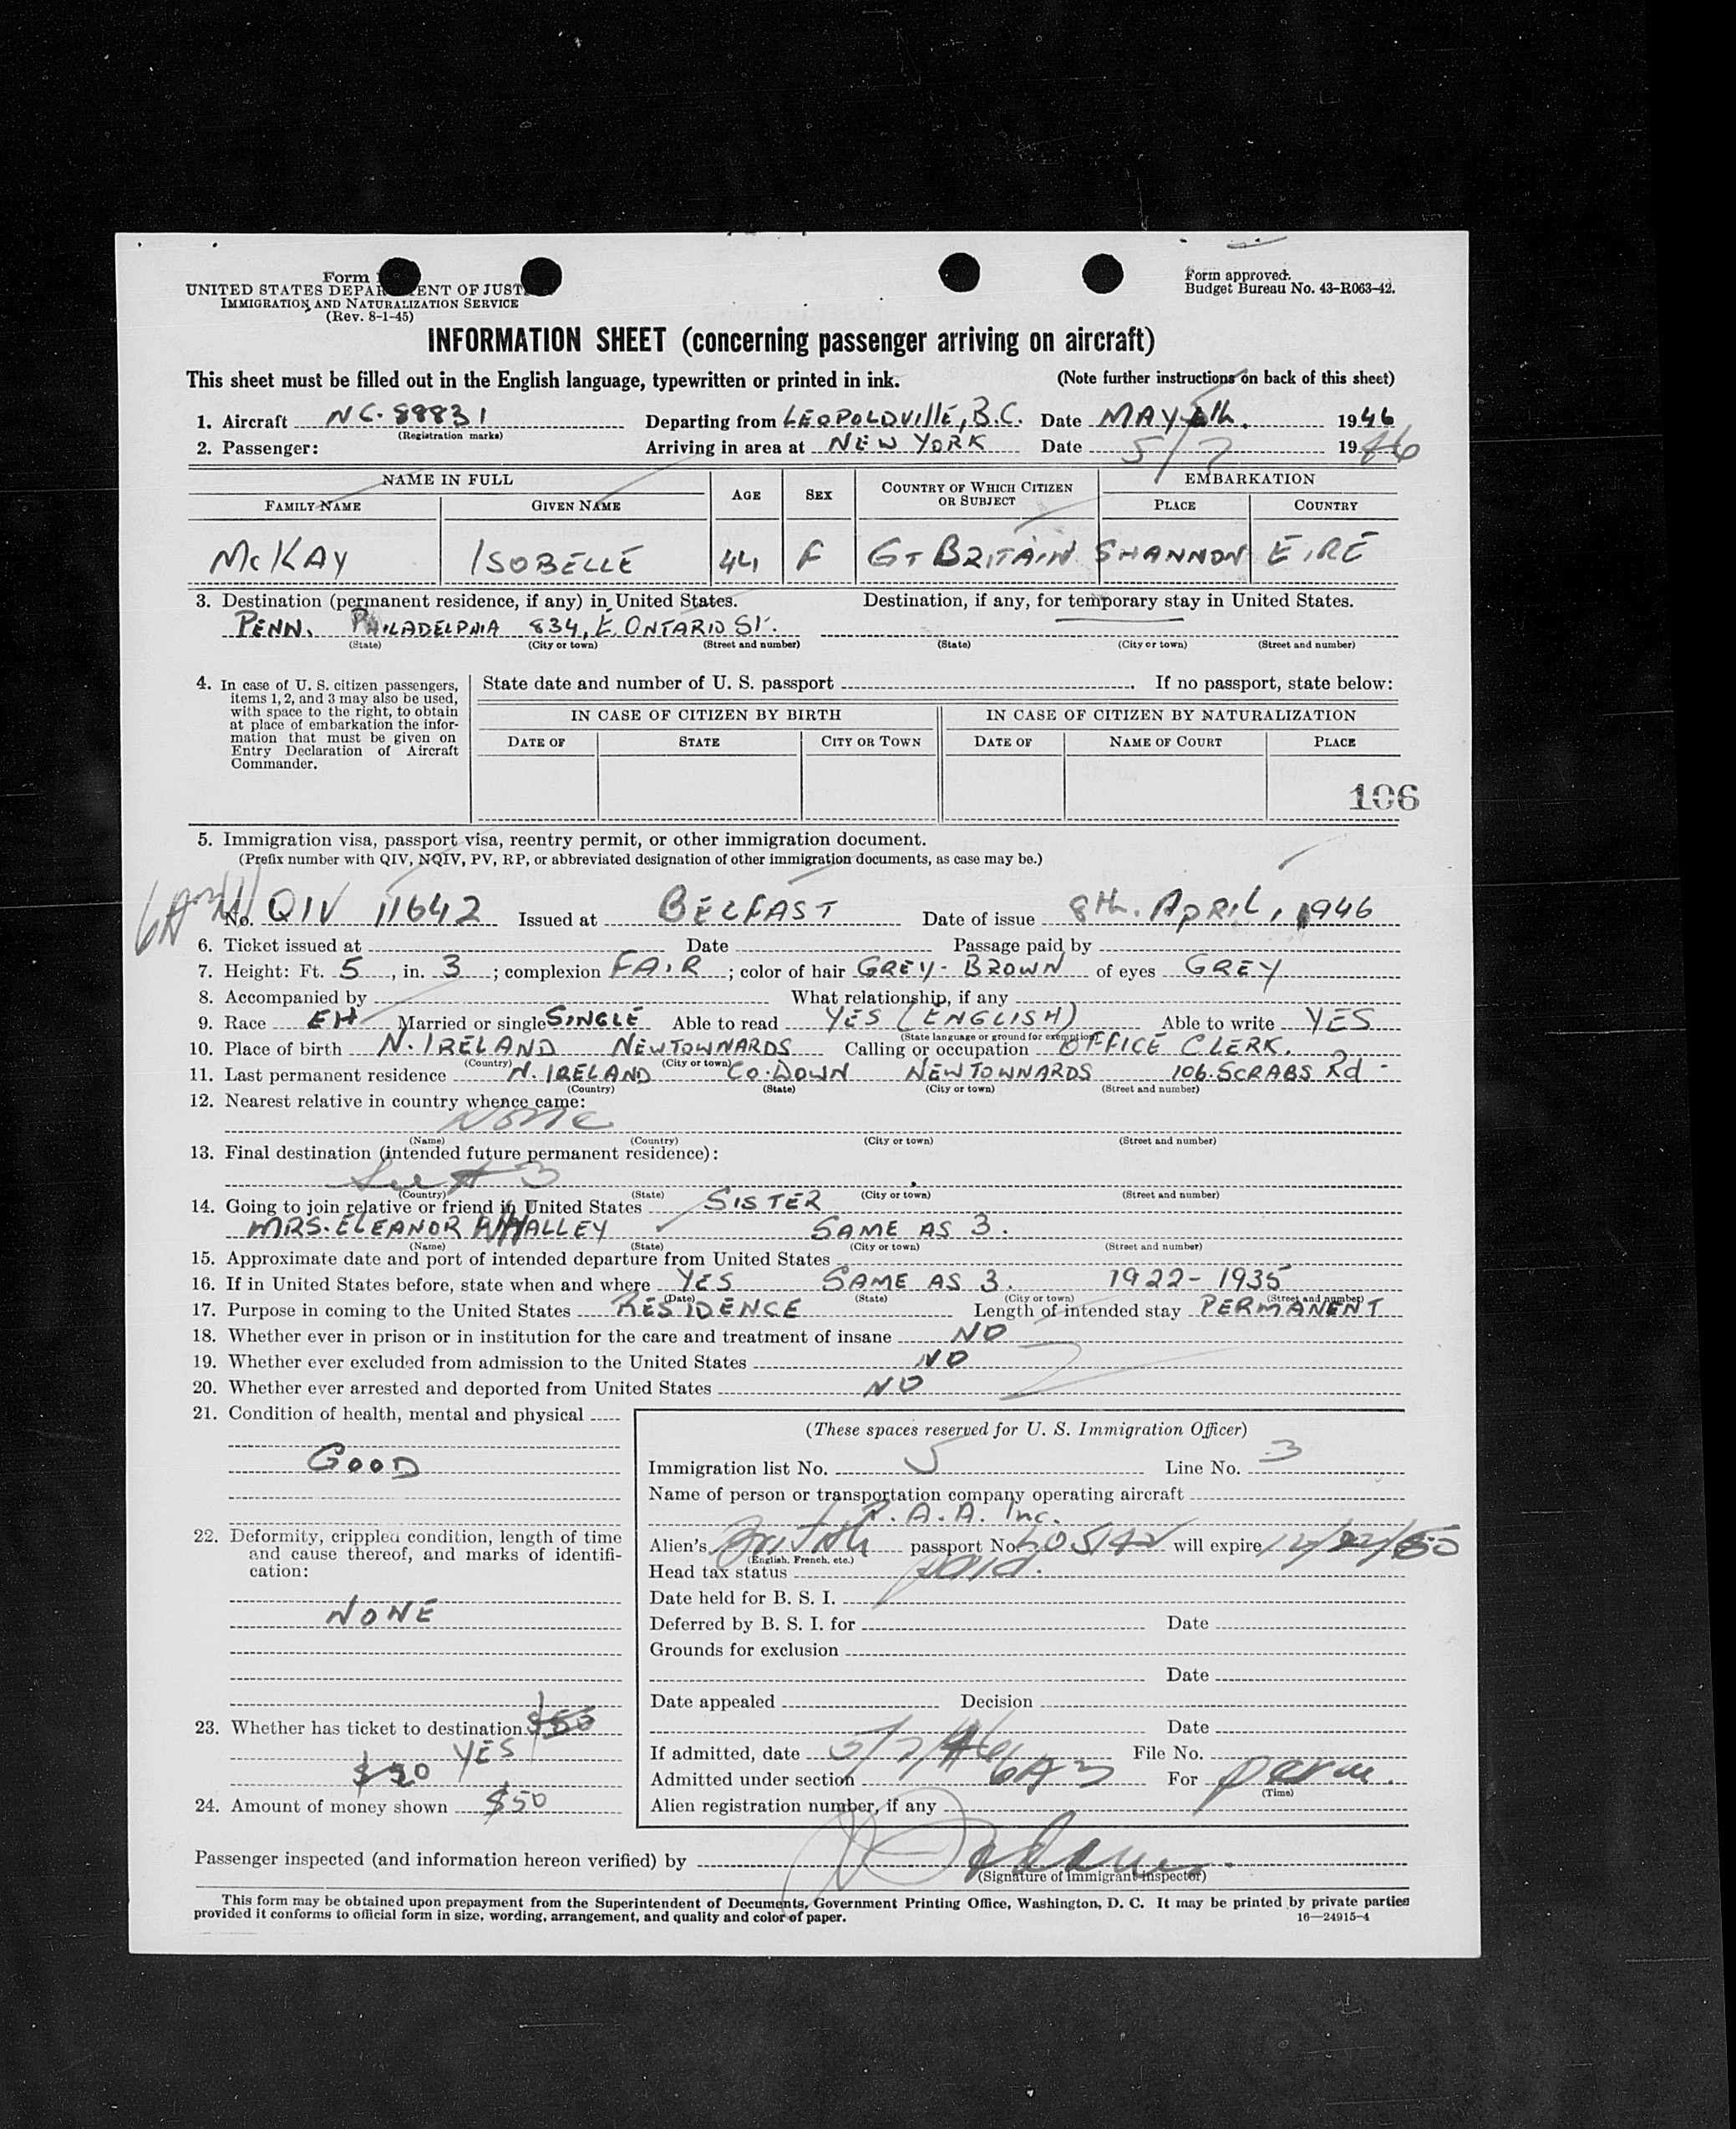 Form
UNITED STATES DEPARTMENT OF JUSTICE
IMMIGRATION AND NATURALIZATION SERVICE
(Rev. 8-1-45)
Form approved.
Budget Bureau No. 43-R063-42.
INFORMATION SHEET (concerning passenger arriving on aircraft)
This sheet must be filled out in the English language, typewritten or printed in ink. (Note further instructions on back of this sheet)
1. Aircraft NC. 88831 Departing from LEOPOLDVILLE, B.C. Date MAY 6th. 1946
(Registration marks)
2. Passenger: Arriving in area at NEW YORK Date 5/7 1946
NAME IN FULL AGE SEX COUNTRY OF WHICH CITIZEN OR SUBJECT EMBARKATION
FAMILY NAME GIVEN NAME PLACE COUNTRY
McKAY ISOBELLE 44 F GT BRITAIN SHANNON EIRE
3. Destination (permanent residence, if any) in United States. Destination, if any, for temporary stay in United States.
PENN. PHILADELPHIA 834, E. ONTARIO ST.
(State) (City or town) (Street and number) (State) (City or town) (Street and number)
4. In case of U. S. citizen passengers, items 1, 2, and 3 may also be used, with space to the right, to obtain at place of embarkation the information that must be given on Entry Declaration of Aircraft Commander.
State date and number of U. S. passport . If no passport, state below:
IN CASE OF CITIZEN BY BIRTH IN CASE OF CITIZEN BY NATURALIZATION
DATE OF STATE CITY OR TOWN DATE OF NAME OF COURT PLACE
106
5. Immigration visa, passport visa, reentry permit, or other immigration document.
(Prefix number with QIV, NQIV, PV, RP, or abbreviated designation of other immigration documents, as case may be.)
No. QIV 11642 Issued at BELFAST Date of issue 8th. APRIL, 1946
6. Ticket issued at Date Passage paid by
7. Height: Ft. 5, in. 3; complexion FAIR; color of hair GREY-BROWN of eyes GREY
8. Accompanied by What relationship, if any
9. Race EH Married or single SINGLE Able to read YES (ENGLISH) Able to write YES
(State language or ground for exemption)
10. Place of birth N. IRELAND NEWTOWNARDS Calling or occupation OFFICE CLERK.
(Country) (City or town)
11. Last permanent residence N. IRELAND CO. DOWN NEWTOWNARDS 106. SCRABS Rd
(Country) (State) (City or town) (Street and number)
12. Nearest relative in country whence came:
None
(Name) (Country) (City or town) (Street and number)
13. Final destination (intended future permanent residence):
See # 3
(Country) (State) (City or town) (Street and number)
14. Going to join relative or friend in United States SISTER
MRS. ELEANOR WHALLEY SAME AS 3.
(Name) (State) (City or town) (Street and number)
15. Approximate date and port of intended departure from United States
16. If in United States before, state when and where YES SAME AS 3. 1922-1935
(Date) (State) (City or town) (Street and number)
17. Purpose in coming to the United States RESIDENCE Length of intended stay PERMANENT
18. Whether ever in prison or in institution for the care and treatment of insane NO
19. Whether ever excluded from admission to the United States NO
20. Whether ever arrested and deported from United States NO
21. Condition of health, mental and physical
GOOD
22. Deformity, crippled condition, length of time and cause thereof, and marks of identification:
NONE
23. Whether has ticket to destination $50
YES
$50
24. Amount of money shown $50
(These spaces reserved for U. S. Immigration Officer)
Immigration list No. 5 Line No. 3
Name of person or transportation company operating aircraft
P. A. A. Inc.
Alien's British passport No. will expire
(English, French, etc.)
Head tax status paid.
Date held for B. S. I.
Deferred by B. S. I. for Date
Grounds for exclusion
Date
Date appealed Decision
Date
If admitted, date 5/7/46 File No.
Admitted under section 6A3 For perm.
(Time)
Alien registration number, if any
Passenger inspected (and information hereon verified) by
(Signature of Immigrant Inspector)
This form may be obtained upon prepayment from the Superintendent of Documents, Government Printing Office, Washington, D. C. It may be printed by private parties
provided it conforms to official form in size, wording, arrangement, and quality and color of paper. 16—24915-4